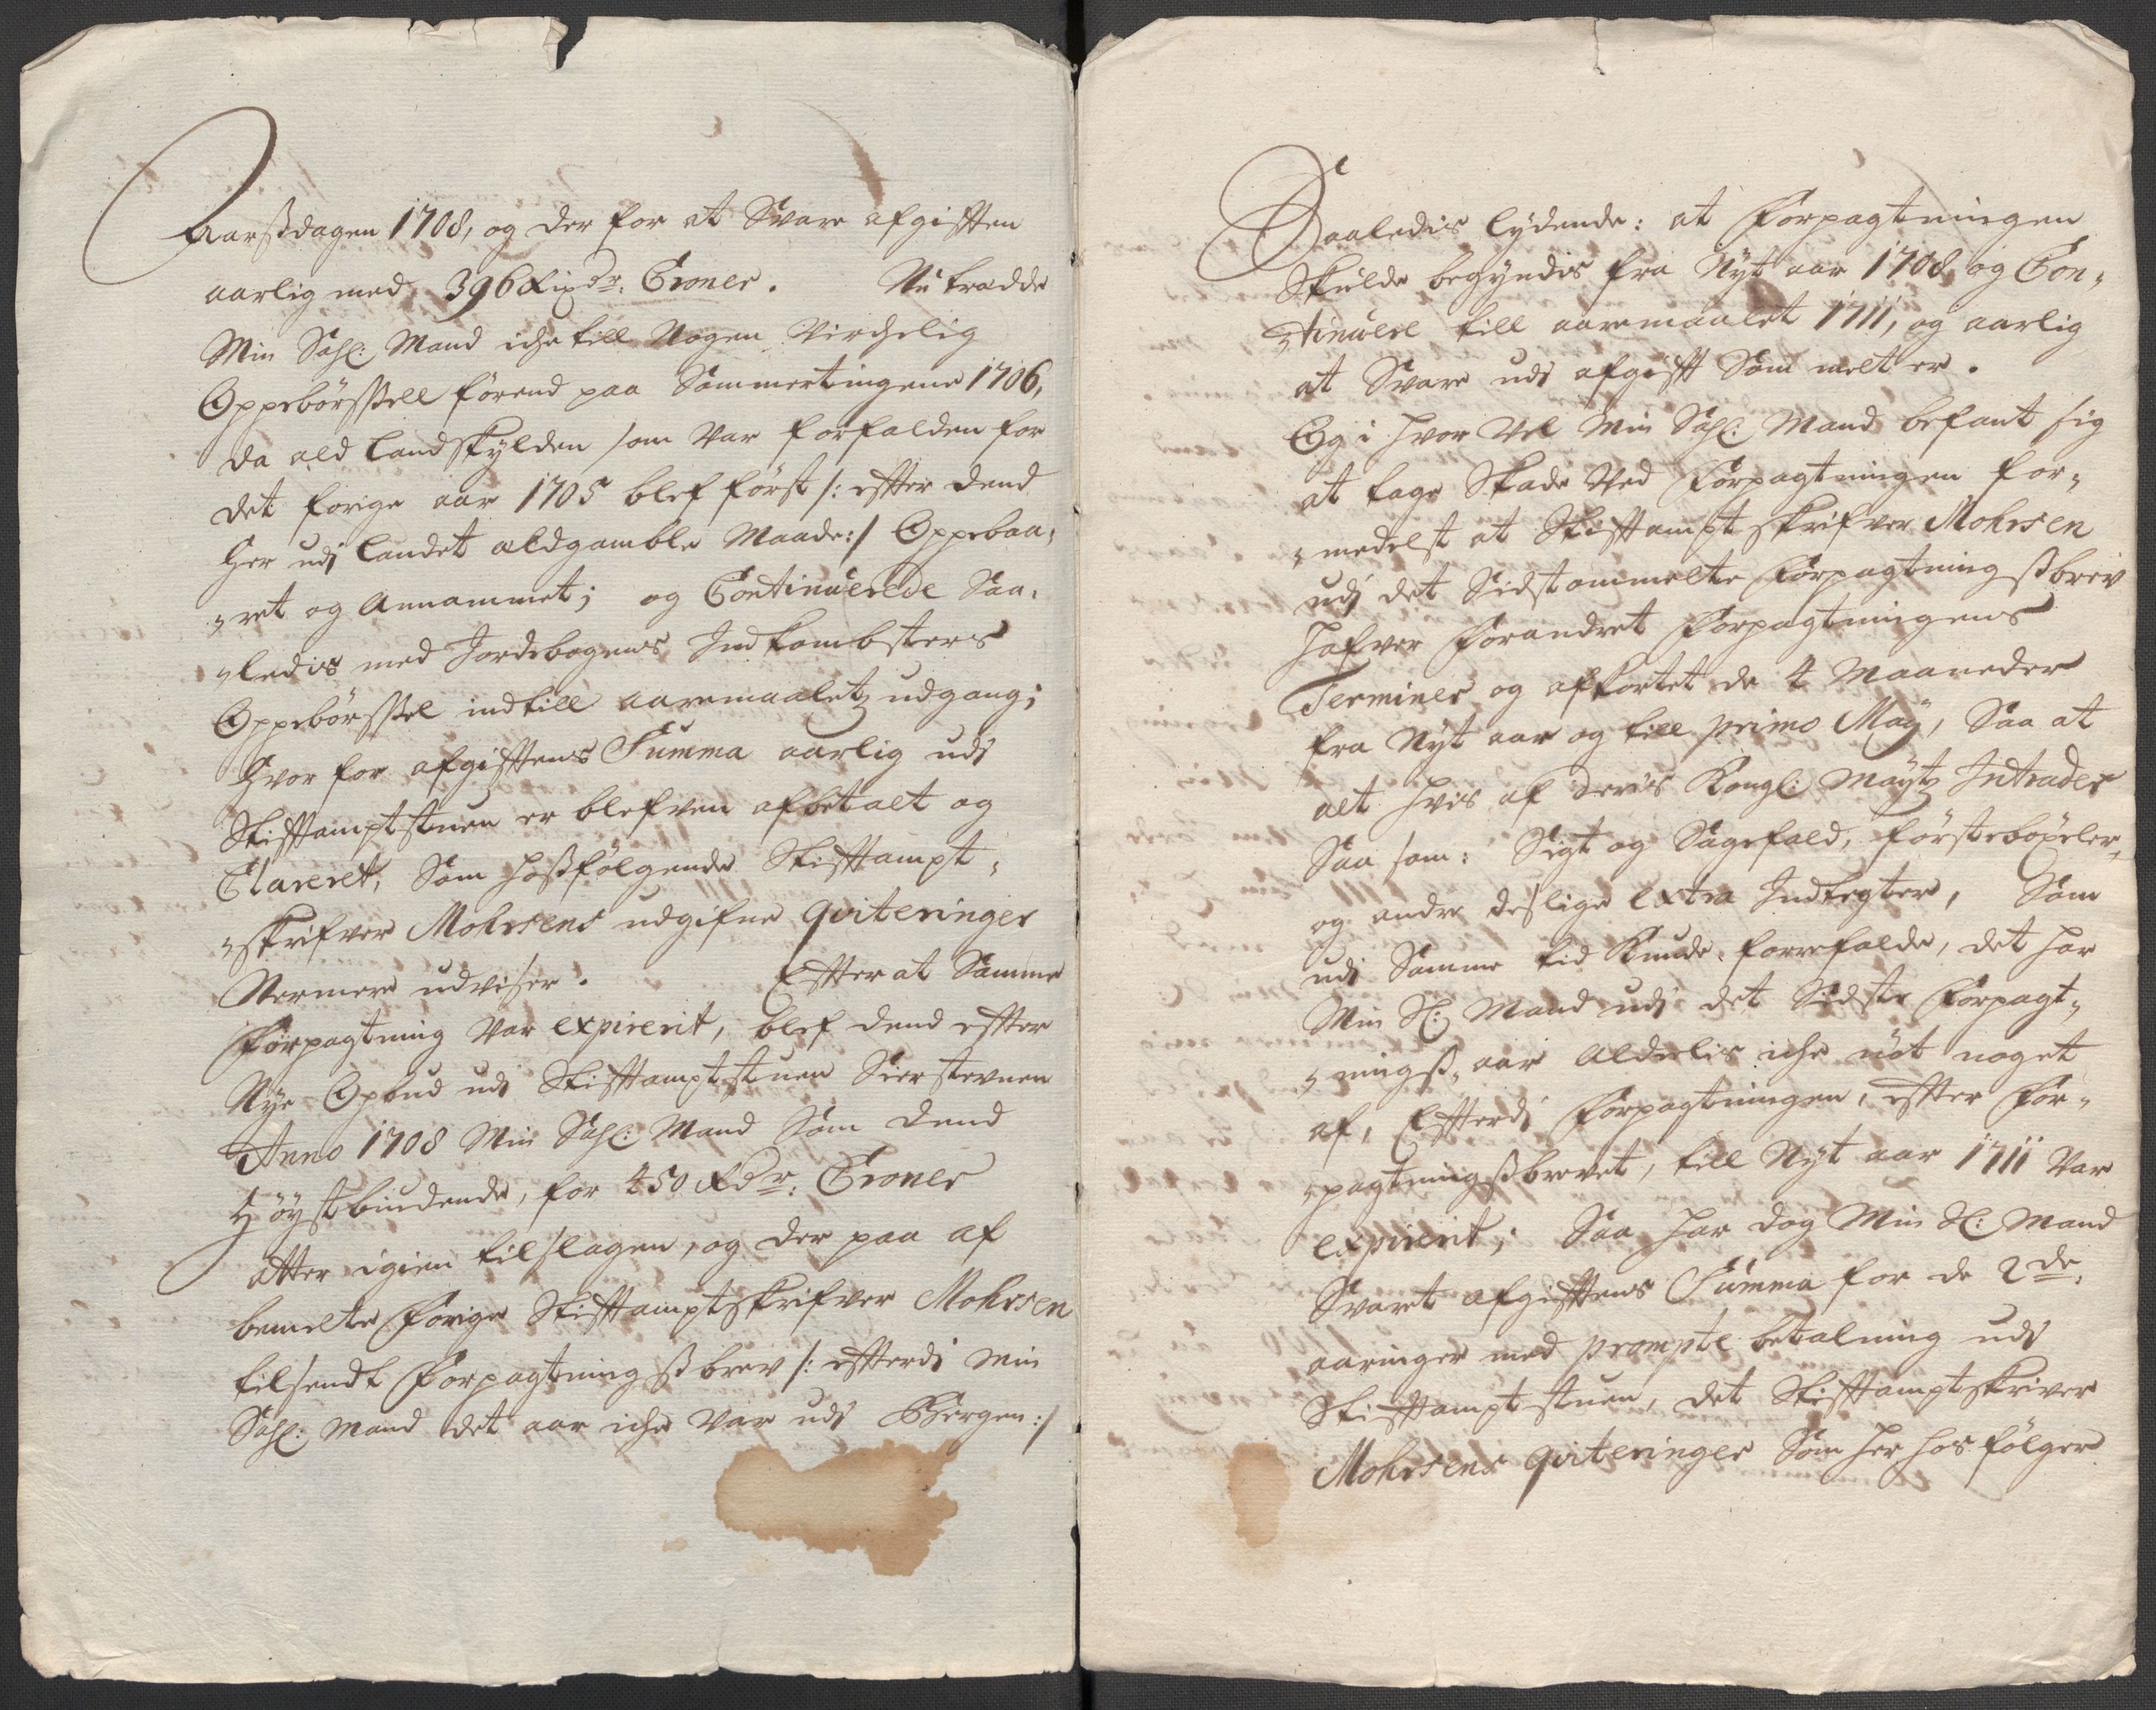 Aarsdagen 1708, og der for at Svare afgifften
aarlig med 396 Rixdr: Croner. Nu tradde
Min Sahl: Mand iche till Nogen Virchelig
Oppebörssell förend paa Sommertingene 1706,
da ald Landskylden som var forfalden for
det forige aar 1705 blef först /: effter dend
her udj Landet aldgamble Maade:/ Oppebaa-
-ret og Annammet; og Continuerede Saa-
-ledis med Jordebogens Indkombsters
Oppebörssel indtill aaremaaletz udgang;
Hvor for afgifftens Summa aarlig udj
Stifftamptstuen er blefven afbetalt og
Clareret, Som hoßfölgende Stifftampt-
-skrifver Mohrsens udgifne qviteringer
Nermere udviser. Effter at Samme
Forpagtning var expirerit, blef dend effter
Nye Opbud udj Stifftamptstuen Sierstevnen
Anno 1708 Min Sahl: Mand Som dend
Höystbiudende, for 450 Rdr: Croner
atter igien tilslagen, og der paa af
bemelte Forige Stifftamptskrifver Mohrsen
tilsendt Forpagtningßbrev /: efftterdj Min
Sahl: Mand det aar iche var udj Bergen:/
Saaledis lydende: at Forpagtningen
Skulde begyndis fra Nyt aar 1708 og Con-
-tinuere till aaremaalet 1711, og aarlig
at Svare udj afgifft Som melt er.
Og i hvor vel Min Sahl: Mand befant sig
at tage Skade ved Forpagtningen for-
-medelst at Stifftamptskrifver Mohrsen
udj det Sidstommelte Forpagtningßbrev
hafver Forandret Forpagtningens
Terminer og afkortet de 4 Maaneder
fra Nyt aar og till primo Maÿ, Saa at
alt hvis af deris Kongl: Maytz Intrader
Saa som: Sigt og Sagefald, förstebøxeler,
og andre deslige Extra Indtegter, Som
udj Samme tid kunde forrefalde, det har
Min Sl: Mand udj det Sidste Forpagt-
-ningß aar alderlis iche nöt noget
af, Effterdj Forpagtningen, effter For-
-pagtningßbrevet, till Nyt aar 1711 var
expirerit; Saa har dog Min Sl: Mand
Svaret afgifftens Summa for de 2de
aaringer med prompte betalning udj
Stifftamptstuen, det Stifftamptskriver
Mohrsens qviteringer Som her hos fölger